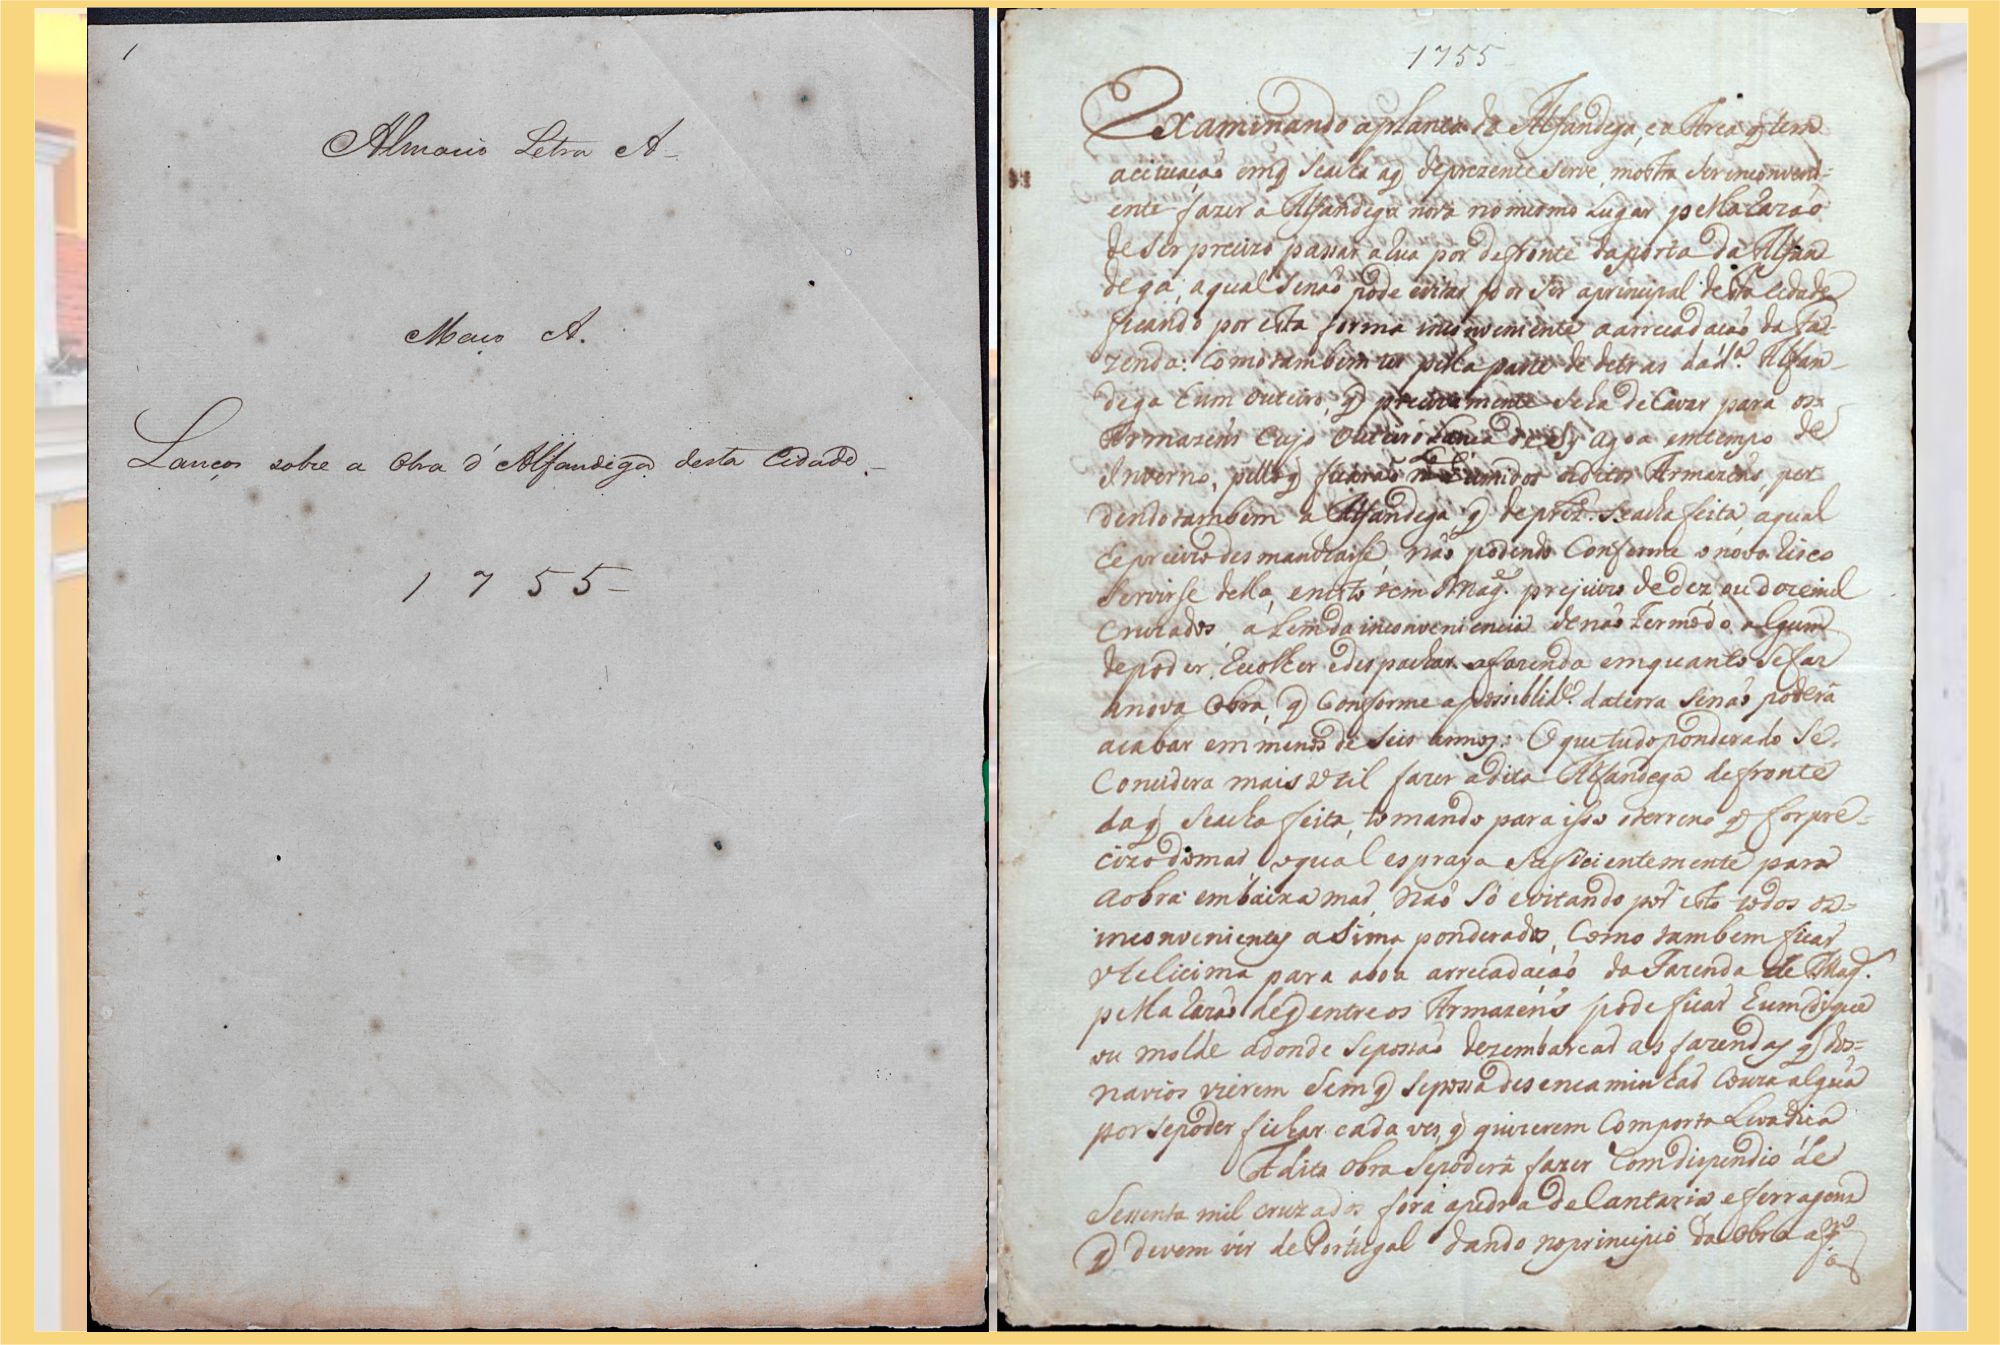 1
Almario Letra A -
Maço A.
Lanços sobre a Obra d'Alfandega desta Cidade. -
1755 -
1755
Examinando aplanta da Alfandega, ea Area q̃ tem
acituaçaõ emq̃ Seacha aq̃ deprezente Serve, mostra Serinconveni=
ente fazer a Alfandega nova nomesmo Lugar pella razaõ
deSer precizo passar aRua por defronte daporta da Alfan
dega, aqual Senaõ pode evitar por Ser aprincipal desta Cidade
ficando por esta forma inconveniente aarrecadaçaõ da fa=
zenda: Comotambem ter pella parte dedetras dad.ª Alfan-
dega hum outeiro, q̃ precizamente Seha deCavar para os
Armazéns Cujo Outeiro Lança deSy Agoa emtempo de
Inverno, pelloq̃ ficaraõ humidos osditos Armazéns, per
dendotambem a Alfandega, q̃ deprez. Seacha feita, aqual
he precizo desmancharse, naõ podendo Conforme onovo Risco
Servirse della, enisto tem Mag.ᵉ prejuizo dedez, ou dozemil
Cruzados, alemda inconveniencia denaõ termodo algum
depoder recolher edespachar afazenda emquanto Sefaz
anova Obra, q̃ Conforme apossiblid.ᵉ daterra Senaõ poderá
acabar emmenos de Seis annos: Oquetudoponderado Se
Considera mais util fazer adita Alfandega defronte
daq̃ Seacha feita, tomando paraisso oterreno q̃ forpre=
cizodomar, oqual espraya Suficientemente para
aobra embaixa mar, Naõ Só evitando por isto todos os=
inconvenientes aSima ponderados, Como tambem ficar
utelicima para aboa arrecadaçaõ da Fazenda de Mag.ᵉ
pella razaõ deq̃ entreos Armazéns pode ficar hum dique
ou molde adonde Sepossaõ dezembarcar as fazendas q̃ dos=
navios vierem Semq̃ Sepossa desencaminhar Couza alguã
por Sepoder fichar cada ves q̃ quizerem Comporta Levadica
A dita Obra Sepoderá fazer Comdispendio de
Secenta mil cruzados fora apedra deCantaria, eferragens
q̃ devem vir dePortugal dando noprincipio da Obra